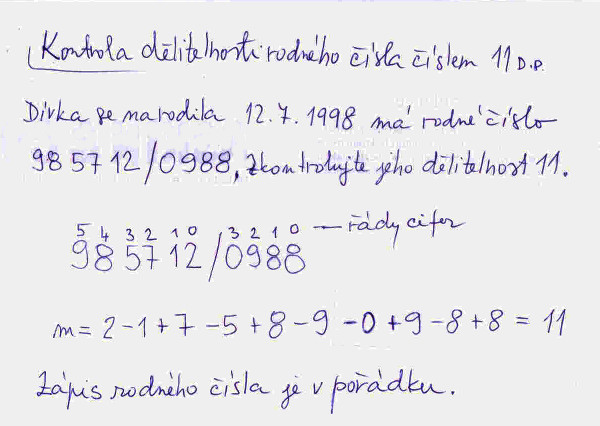 Kontrola dělitelnosti rodného čísla číslem 11 D.P.
Dívka se narodila 12.7.1998 má rodné číslo
985712/0988, zkontrolujte jeho dělitelnost 11.
5 4 3 2 1 0 3 2 1 0 — řády cifer
985712/0988
m = 2-1+7-5+8-9-0+9-8+8 = 11
Zápis rodného čísla je v pořádku.